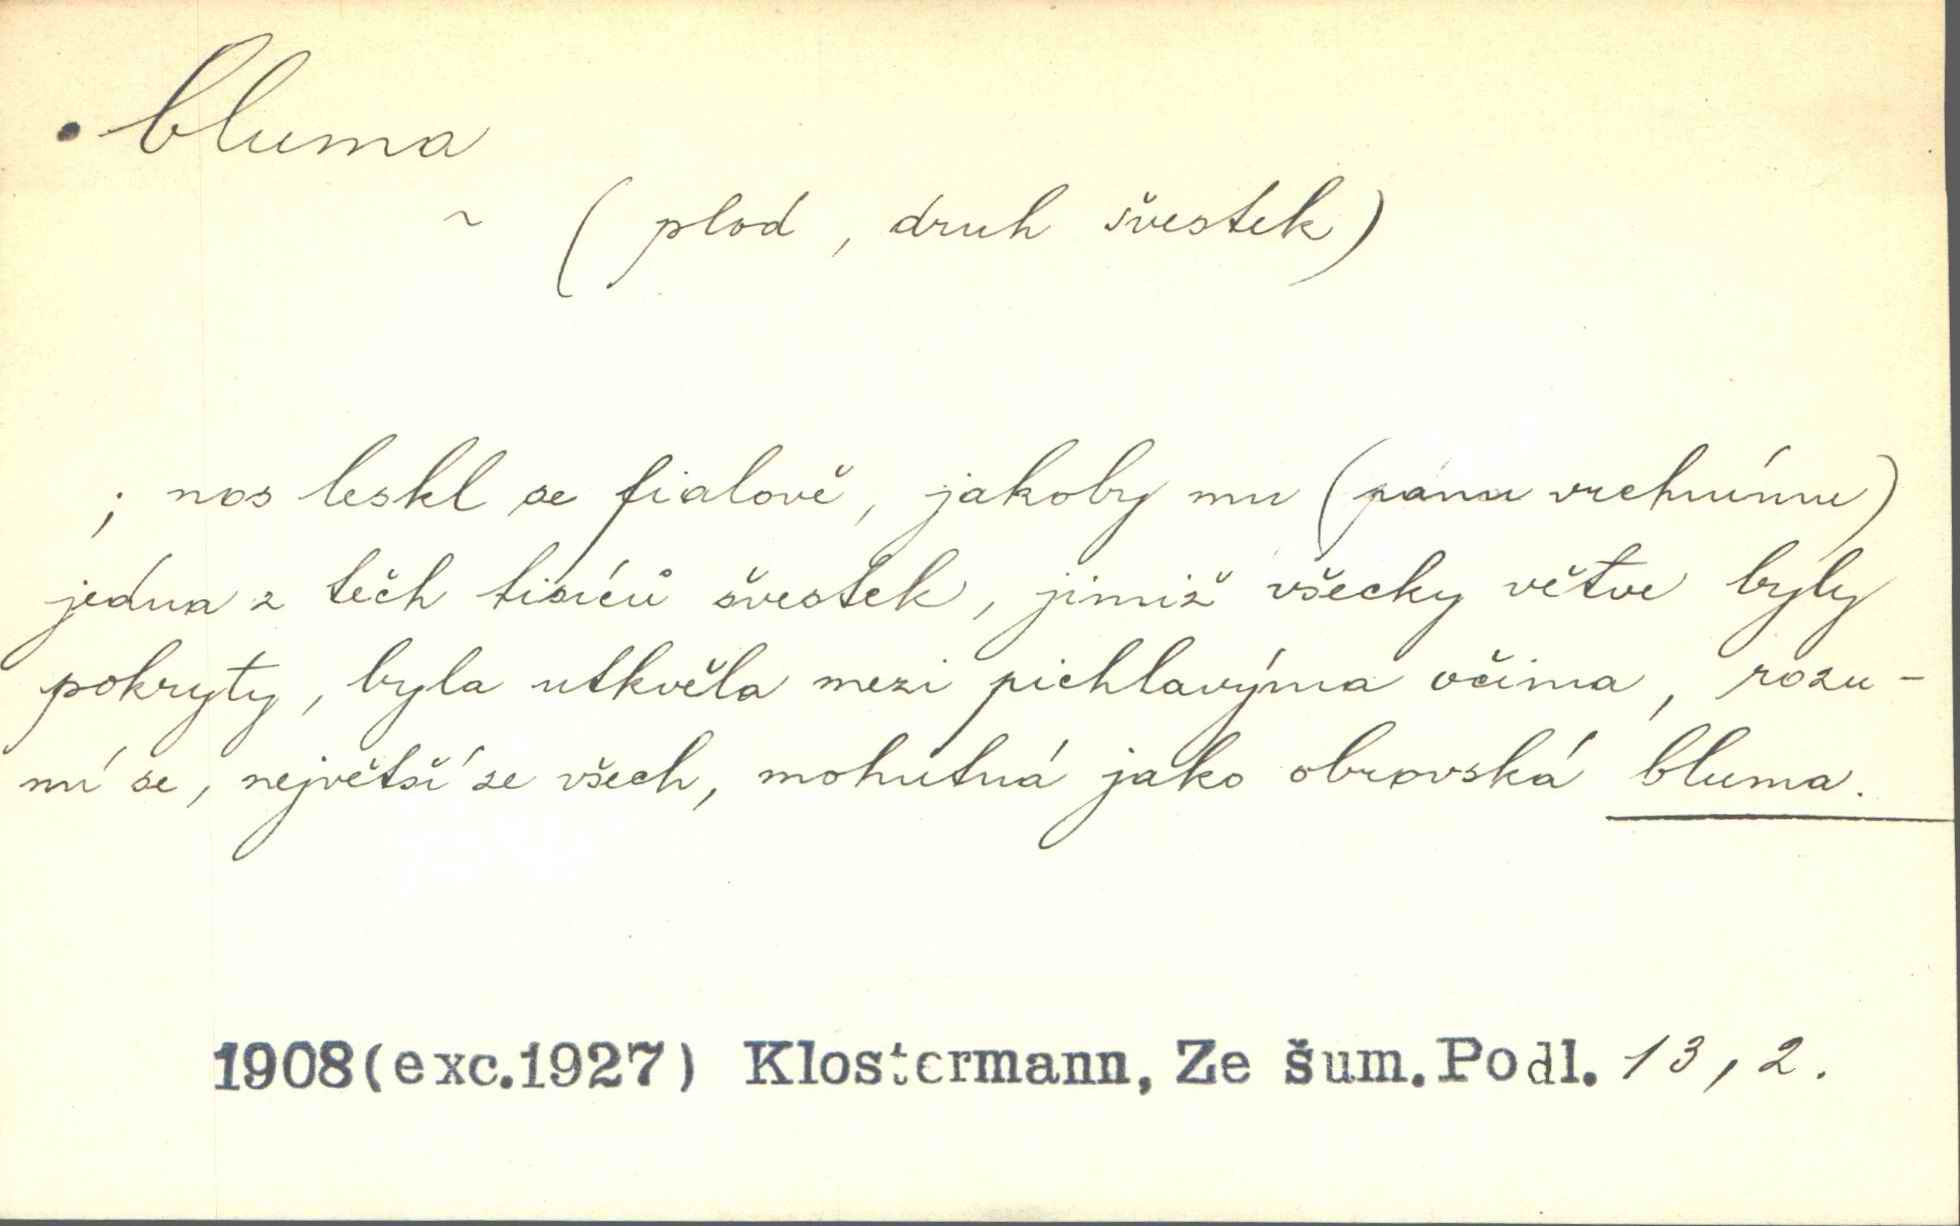 • bluma
~ (plod, druh švestek)
; nos leskl se fialově, jakoby mu (pánu vrchnímu)
jedna z těch tisíců švestek, jimiž všecky větve byly
pokryty, byla utkvěla mezi pichlavýma očima, rozu-
mí se, největší ze všech, mohutná jako obrovská bluma.
1908(exc.1927) Klostermann, Ze šum. Podl. 13, 2.